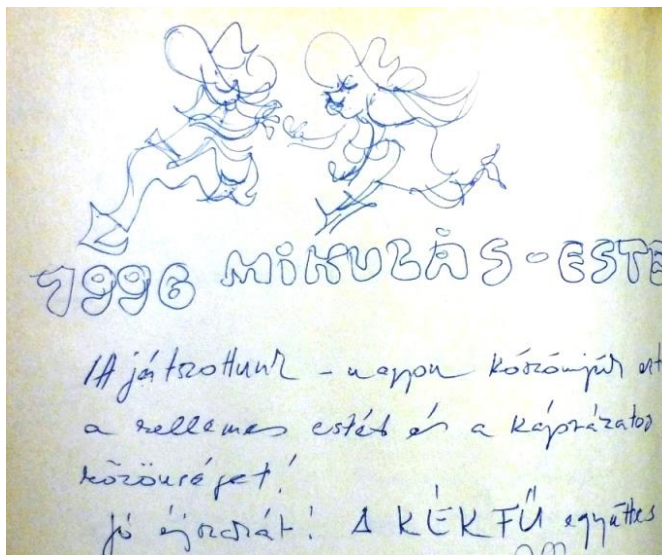 1996 MIKULÁS-ESTE
játszottunk - nagyon köszönjük ezt
a kellemes estét és a káprázatos
közönséget!
jó éjszakát! A KÉKFŰ együttes